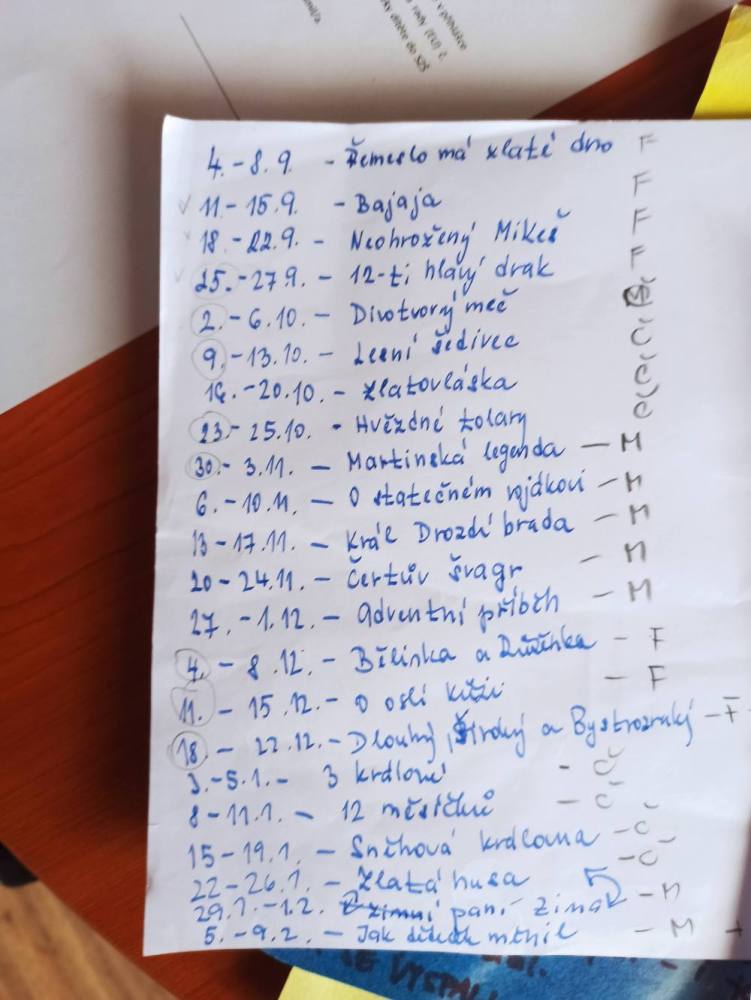 v přihlášce
rady (EU) 2
dítěte do SŠ
4.-8.9. - Řemeslo má zlaté dno F
✓ 11-15.9. - Bajaja F
18.-22.9. - Neohrožený Mikeš F
✓ 25.-27.9. - 12-ti hlavý drak F
2.-6.10. - Divotvorný meč Č
9.-13.10. - Lesní šedivec Č
16.-20.10. - Zlatovláska Č
23.-25.10. - Hvězdné tolary Č
30.-3.11. - Martinská legenda - M
6.-10.11. - O statečném vojákovi - M
13-17.11. - Král Drozdí brada - M
20-24.11. - Čertův švagr - M
27.-1.12. - adventní příběh - M
4.-8.12. - Bílinka a Družinka - F
11.-15.12. - O oslí kůži - F
18.-22.12. - Dlouhý, Široký a Bystrozraký - F
3.-5.1. - 3 králové - Č
8-11.1. - 12 měsíčků - Č
15-19.1. - Sněhová královna - Č
22-26.1. - Zlatá husa - Č
29.1.-1.2. zimní paní zima - M
5.-9.2. - Jak dědek měnil - M +